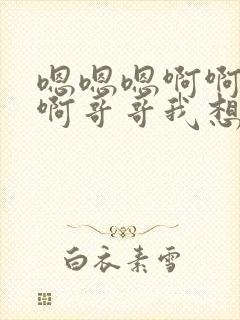 嗯嗯嗯啊啊
啊哥哥我想
白衣素雪